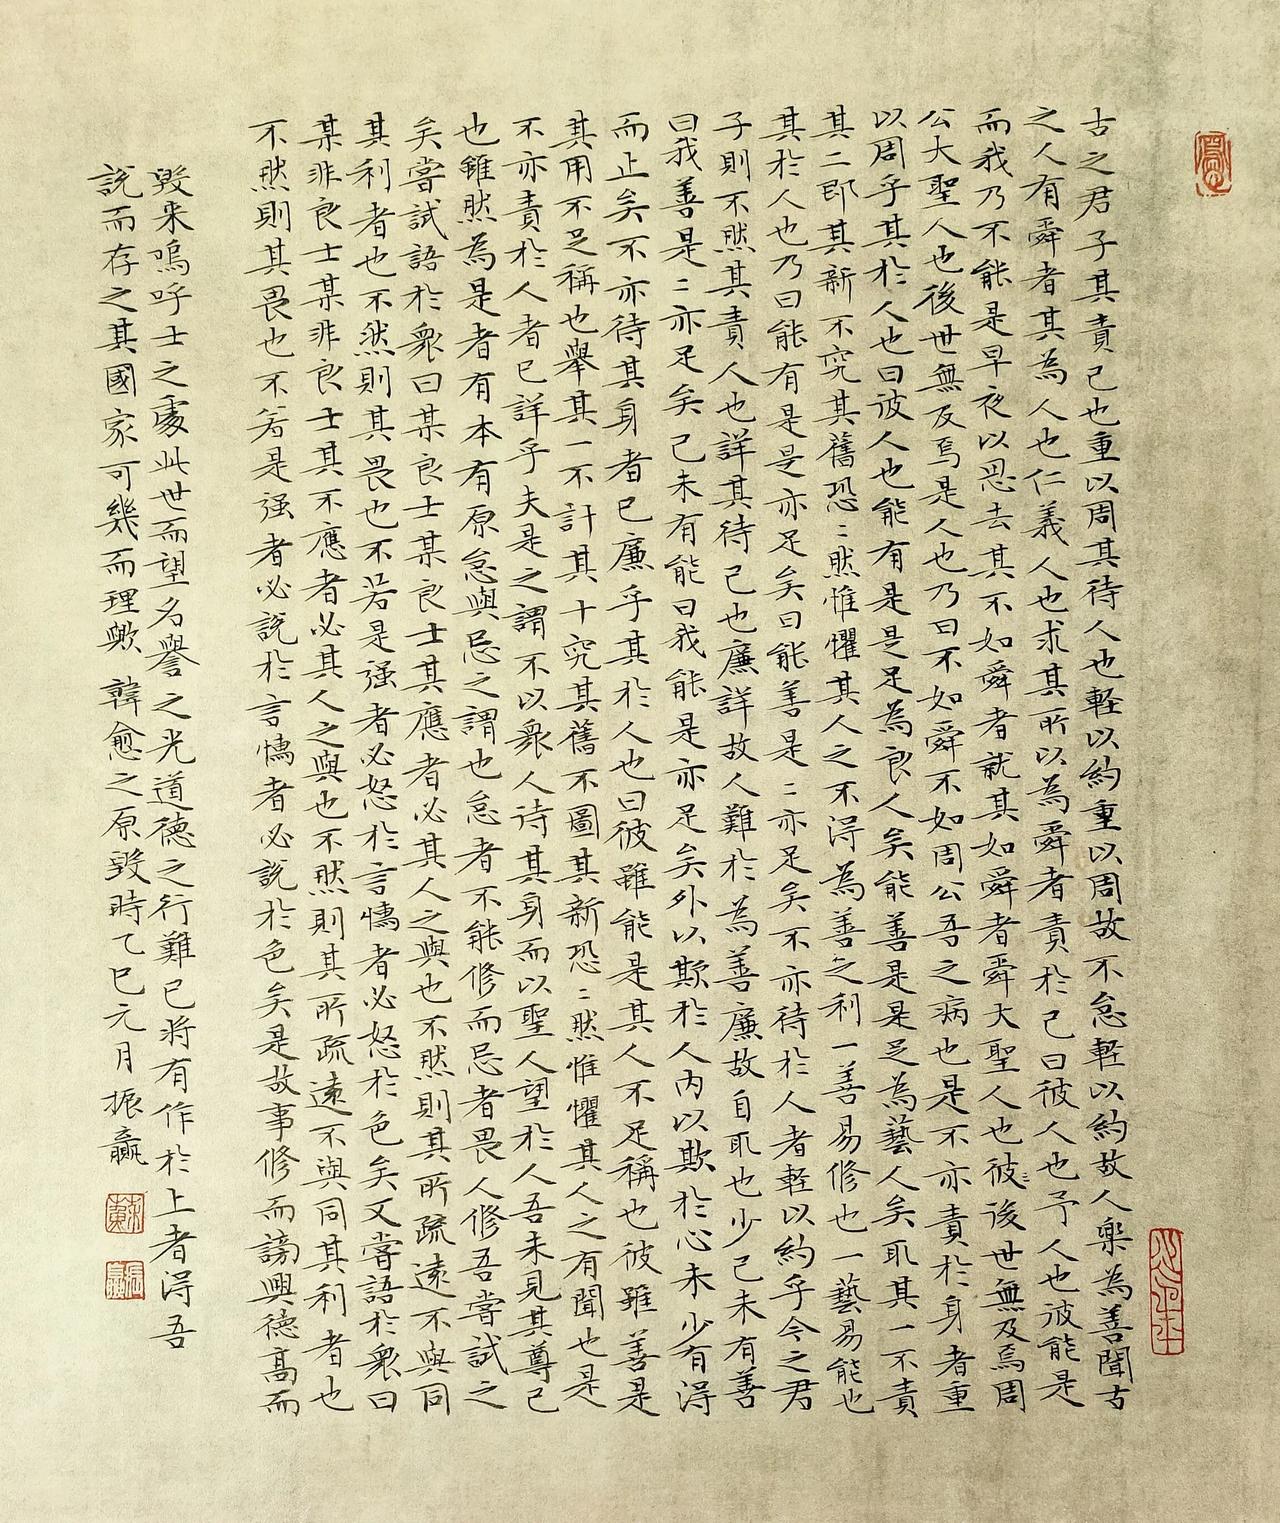 古之君子其責己也重以周其待人也軽以約重以周故不怠軽以約故人樂為善聞古
之人有舜者其為人也仁義人也求其所以為舜者責於己曰彼人也予人也彼能是
而我乃不能是早夜以思去其不如舜者就其如舜者舜大聖人也彼後世無及焉周
公大聖人也後世無及焉是人也乃曰不如舜不如周公吾之病也是不亦責於身者重
以周乎其於人也曰彼人也能有是是足為良人矣能善是是足為藝人矣取其一不責
其二即其新不究其舊恐〻然惟懼其人之不得為善之利一善易修也一藝易能也
其於人也乃曰能有是是亦足矣曰能善是〻亦足矣不亦待於人者軽以約乎今之君
子則不然其責人也詳其待己也廉詳故人難於為善廉故自取也少己未有善
曰我善是〻亦足矣己未有能曰我能是亦足矣外以欺於人内以欺於心未少有得
而止矣不亦待其身者已廉乎其於人也曰彼雖能是其人不足稱也彼雖善是
其用不足稱也舉其一不計其十究其舊不圖其新恐〻然惟懼其人之有聞也是
不亦責於人者已詳乎夫是之謂不以衆人待其身而以聖人望於人吾未見其尊己
也雖然為是者有本有原怠與忌之謂也怠者不能修而忌者畏人修吾嘗試之
矣嘗試語於衆曰某良士某良士其應者必其人之與也不然則其所疏遠不與同
其利者也不然則其畏也不若是强者必怒於言懦者必怒於色矣又嘗語於衆曰
某非良士某非良士其不應者必其人之與也不然則其所疏遠不與同其利者也
不然則其畏也不若是强者必説於言懦者必説於色矣是故事修而謗興德高而
毀来嗚呼士之處此世而望名譽之光道德之行難已将有作於上者得吾
説而存之其國家可幾而理歟 韓愈之原毀時乙巳元月振贏